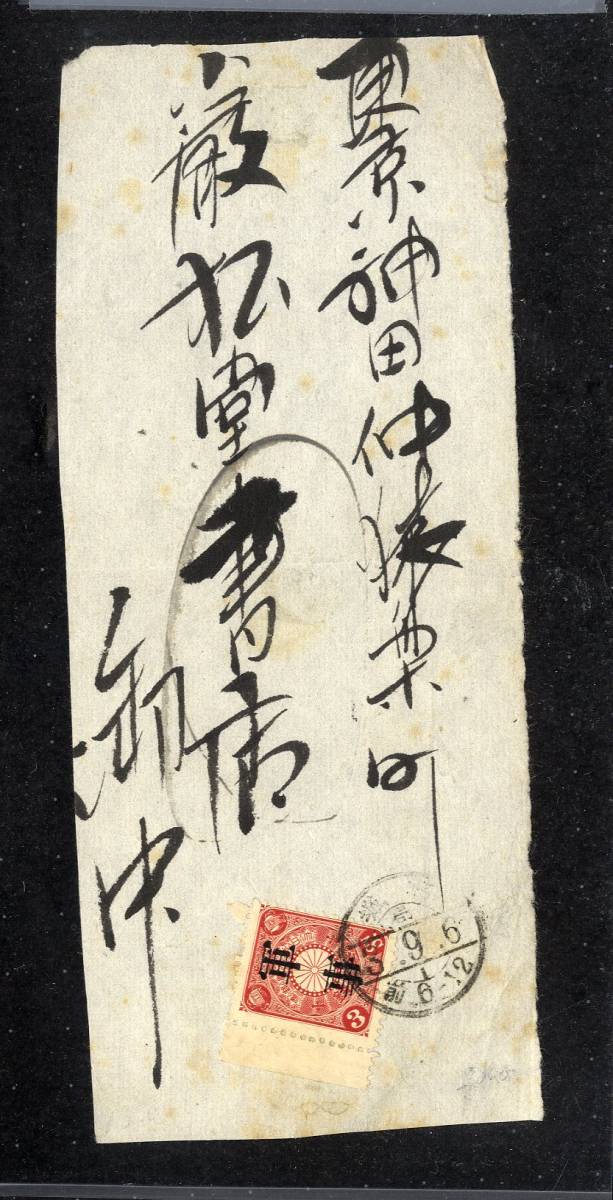 東京神田仲猿楽町
巌松堂書店
御中
軍事
3 SN
9.6
前 6-12